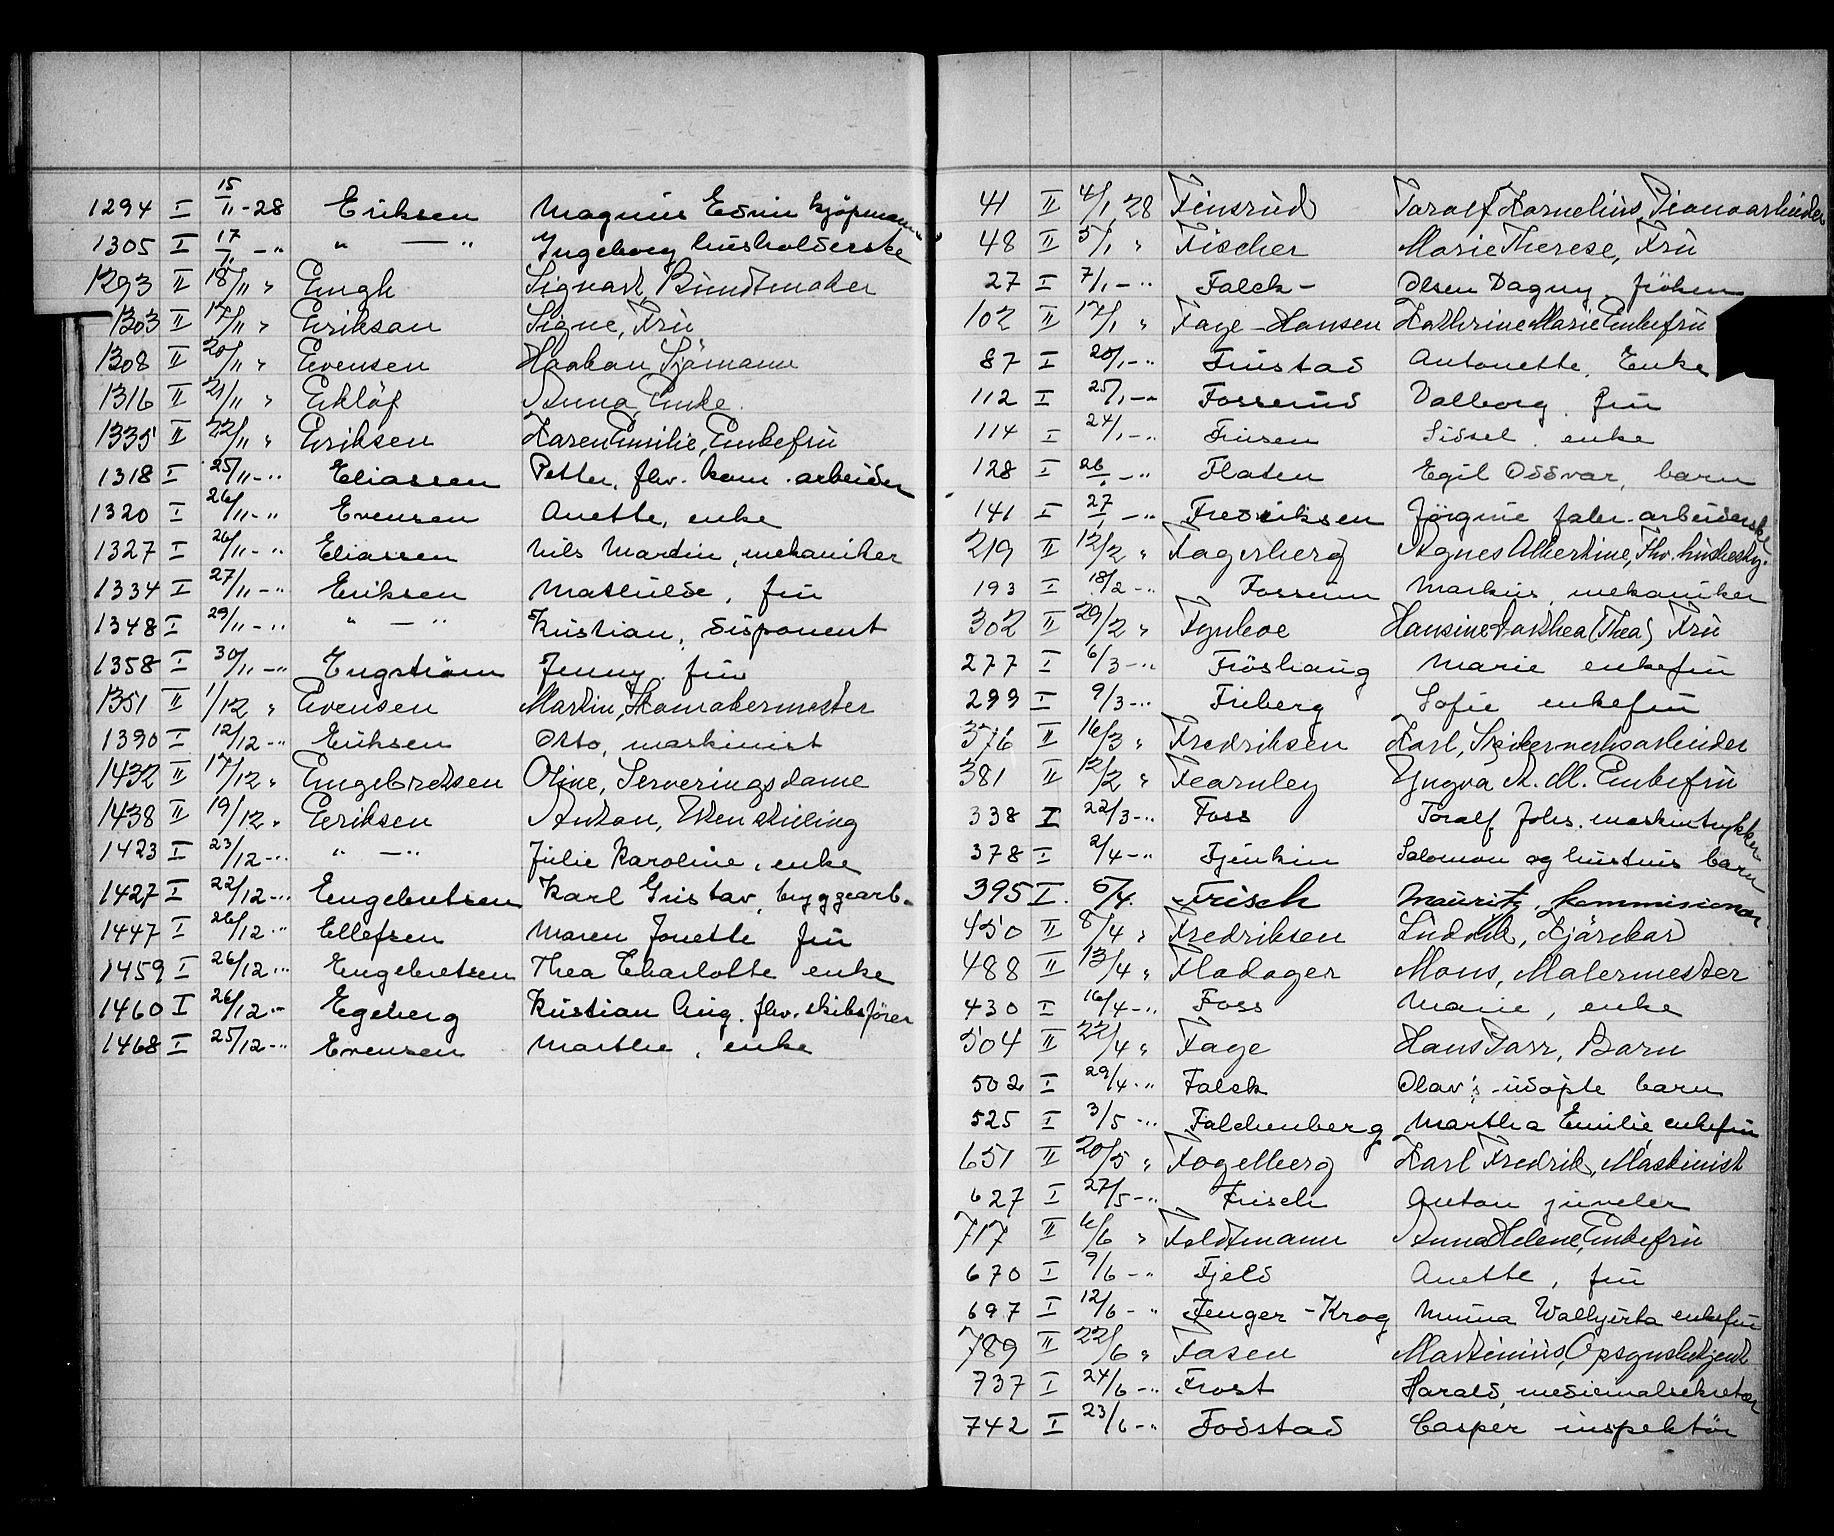 1294 I 15/11-28 Eriksen Magnus Edvin kjøpmann
1305 I 17/11 - " " — " Ingeborg husholderske
1293 II 18/11 " Engh Sigvart, Bundtmaker
1303 II 17/11 " Erikson Signe, Fru
1308 II 20/11 " Evensen Haakon Sjømann
1316 II 21/11 " Eklöf Anna, Enke
1335 II 22/11 " Eriksen Karen Emilie, Enkefru
1318 I 25/11 - " Eliassen Petter, fhv. kom. arbeider
1320 I 26/11 - " Evensen Anette, enke
1327 I 26/11 - " Eliassen Nils Martin, mekaniker
1334 I 27/11 - " Eriksen Mathilde, fru
1348 I 29/11 - " " — " Kristian, disponent
1358 I 30/11 - " Engström Jenny. fru
1351 II 1/12 " Evensen Martin, Skomakermester
1390 I 12/12 - " Eriksen Otto, maskinist
1432 II 17/12 " Engebretsen Oline, Serveringsdame
1438 II 19/12 " Eriksen Anton,
1423 I 23/12 - " " — " Julie Karoline, enke
1427 I 22/12 - " Engebretsen Karl Gustav, byggearb.
1447 I 26/12 " Ellefsen Maren Jonette fru
1459 I 26/12 - " Engebretsen Thea Charlotte enke
1460 I 26/12 - " Egeberg Kristian Aug. fhv. skibsfører
1468 I 25/12 - " Evensen Marthe, enke
41 II 4/1 28 Finsrud Toralf Kornelius, Pianoarbeider
48 II 5/1 " Fischer Marie Therese, Fru
27 I 7/1 - " Falck - Olsen Dagny frøken
102 II 17/1 " Faye - Hansen Kathrine Marie Enkefru
87 I 20/1 - " Frustad Antonette, Enke
112 I 25/1 - " Fosserud Valborg. fru
114 I 24/1 - " Fursen Sidsel. enke
128 I 26/1 - " Flaten Egil Oddvar, barn
141 I 27/1 - " Fredriksen Jørgine fabr. arbeiderske
219 II 12/2 " Fagerberg Agnes Albertine, Fhv. husbesty.
193 I 18/2 - " Fossum Markus, mekaniker
302 II 29/2 " Fynboe Hansine Dorthea (Thea) Fru
277 I 6/3 - " Frøshaug Marie enkefru
299 I 9/3 - " Friberg Sofie enkefru
376 II 16/3 " Fredriksen Karl, Spikerverksarbeider
381 II 12/2 " Fearnley Yngva A. M. Enkefru
338 I 22/3 - " Foss Toralf Johs. maskintrykker
378 I 2/4 - " Fjenkin Salomon og hustrus barn
395 I. 5/4. Frisch Mauritz, kommisionær
450 II 8/4 " Fredriksen Ludvik, Kjørekar
488 II 13/4 " Fladager Mons, Malermester
430 I 16/4 - " Foss Marie, enke
504 II 22/4 " Faye Hans Parr, Barn
502 I 29/4 - " Falck Olav's udøpte barn
525 I 3/5 - " Falchenberg Martha Emilie enkefru
651 II 20/5 " Fogelberg Karl Fredrik, Maskinist
627 I 27/5 - " Frisch Anton juveler
717 II 6/6 " Feldtmann Anna Helene, Enkefru
670 I 9/6 - " Fjeld Anette, fru
697 I 12/6 - " Fenger - Krog Minna Walljerta enkefru
789 II 22/6 " Fasen Martinius, Opsynsbetjent
737 I 24/6 - " Frost Harald, medicinalsekretær
742 I 23/6 - " Fodstad Casper inspektør